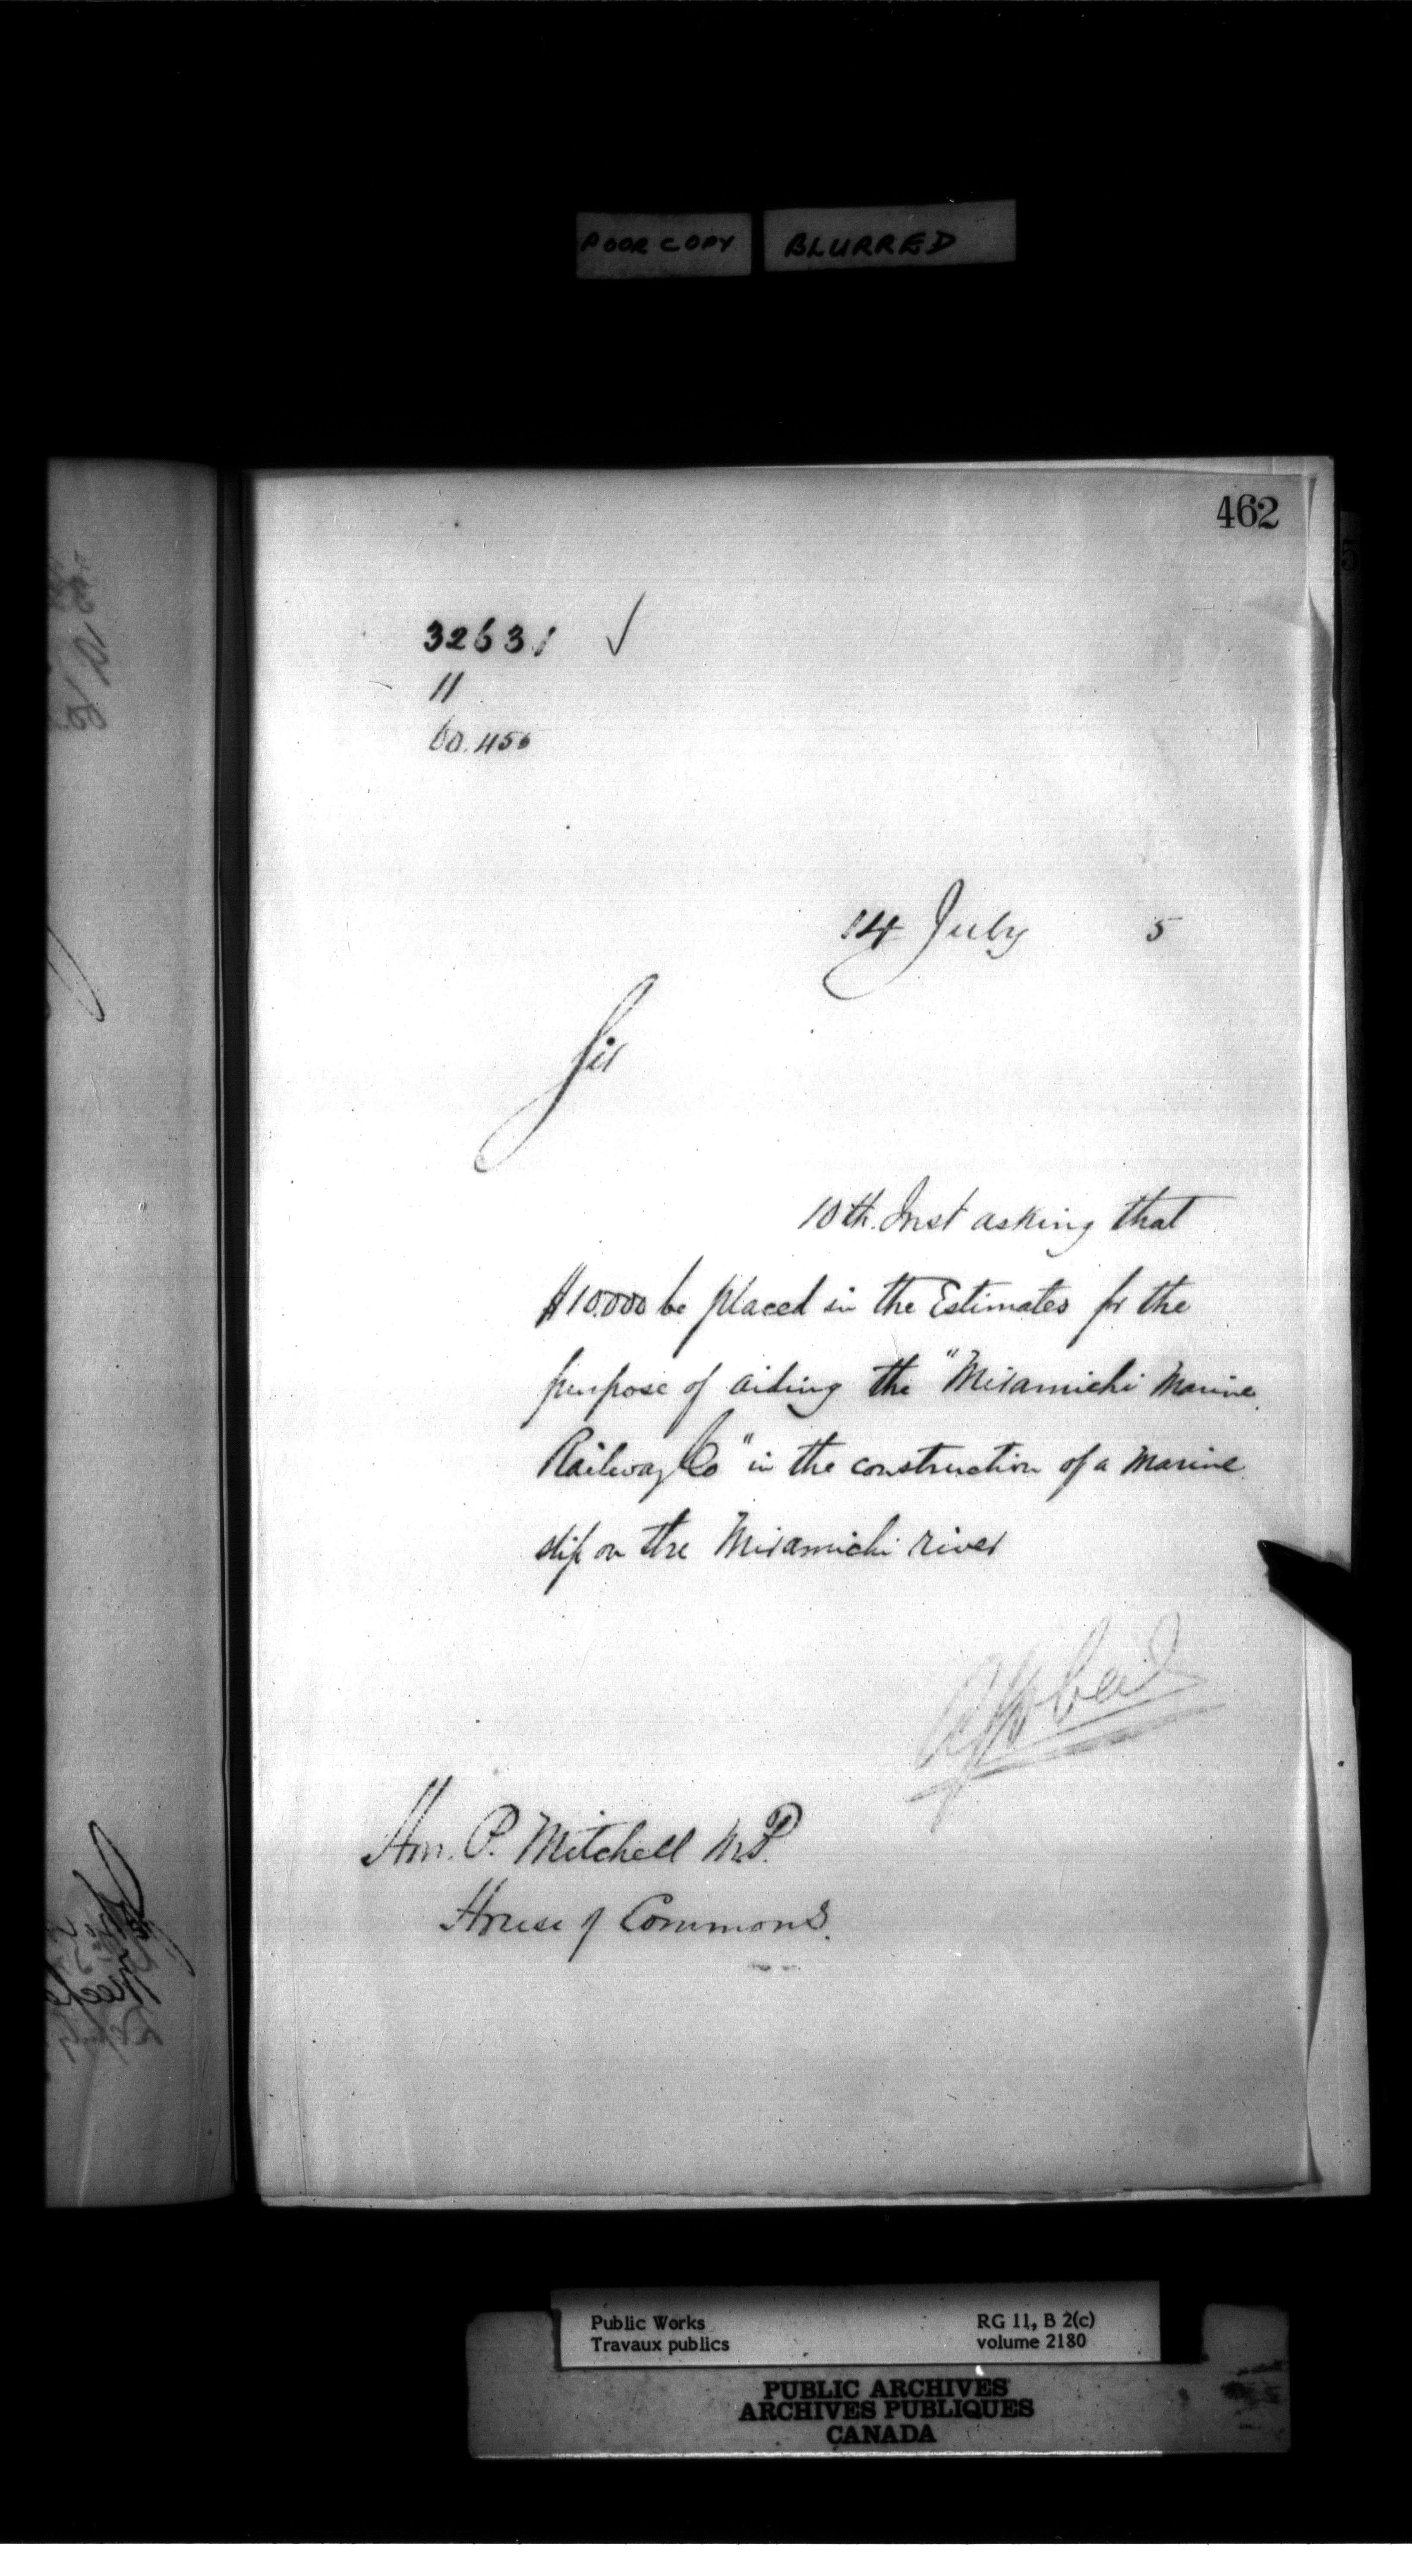 POOR COPY BLURRED
462
32631 ✓
11
60.456
14 July 5
Sir
10th. Inst asking that
$10.000 be placed in the Estimates for the
purpose of aiding the "Miramichi Marine
Railway Co" in the construction of a Marine
slip on the Miramichi river
Hon. P. Mitchell M.P.
House of Commons.
Public Works RG 11, B 2(c)
Travaux publics volume 2180
PUBLIC ARCHIVES
ARCHIVES PUBLIQUES
CANADA